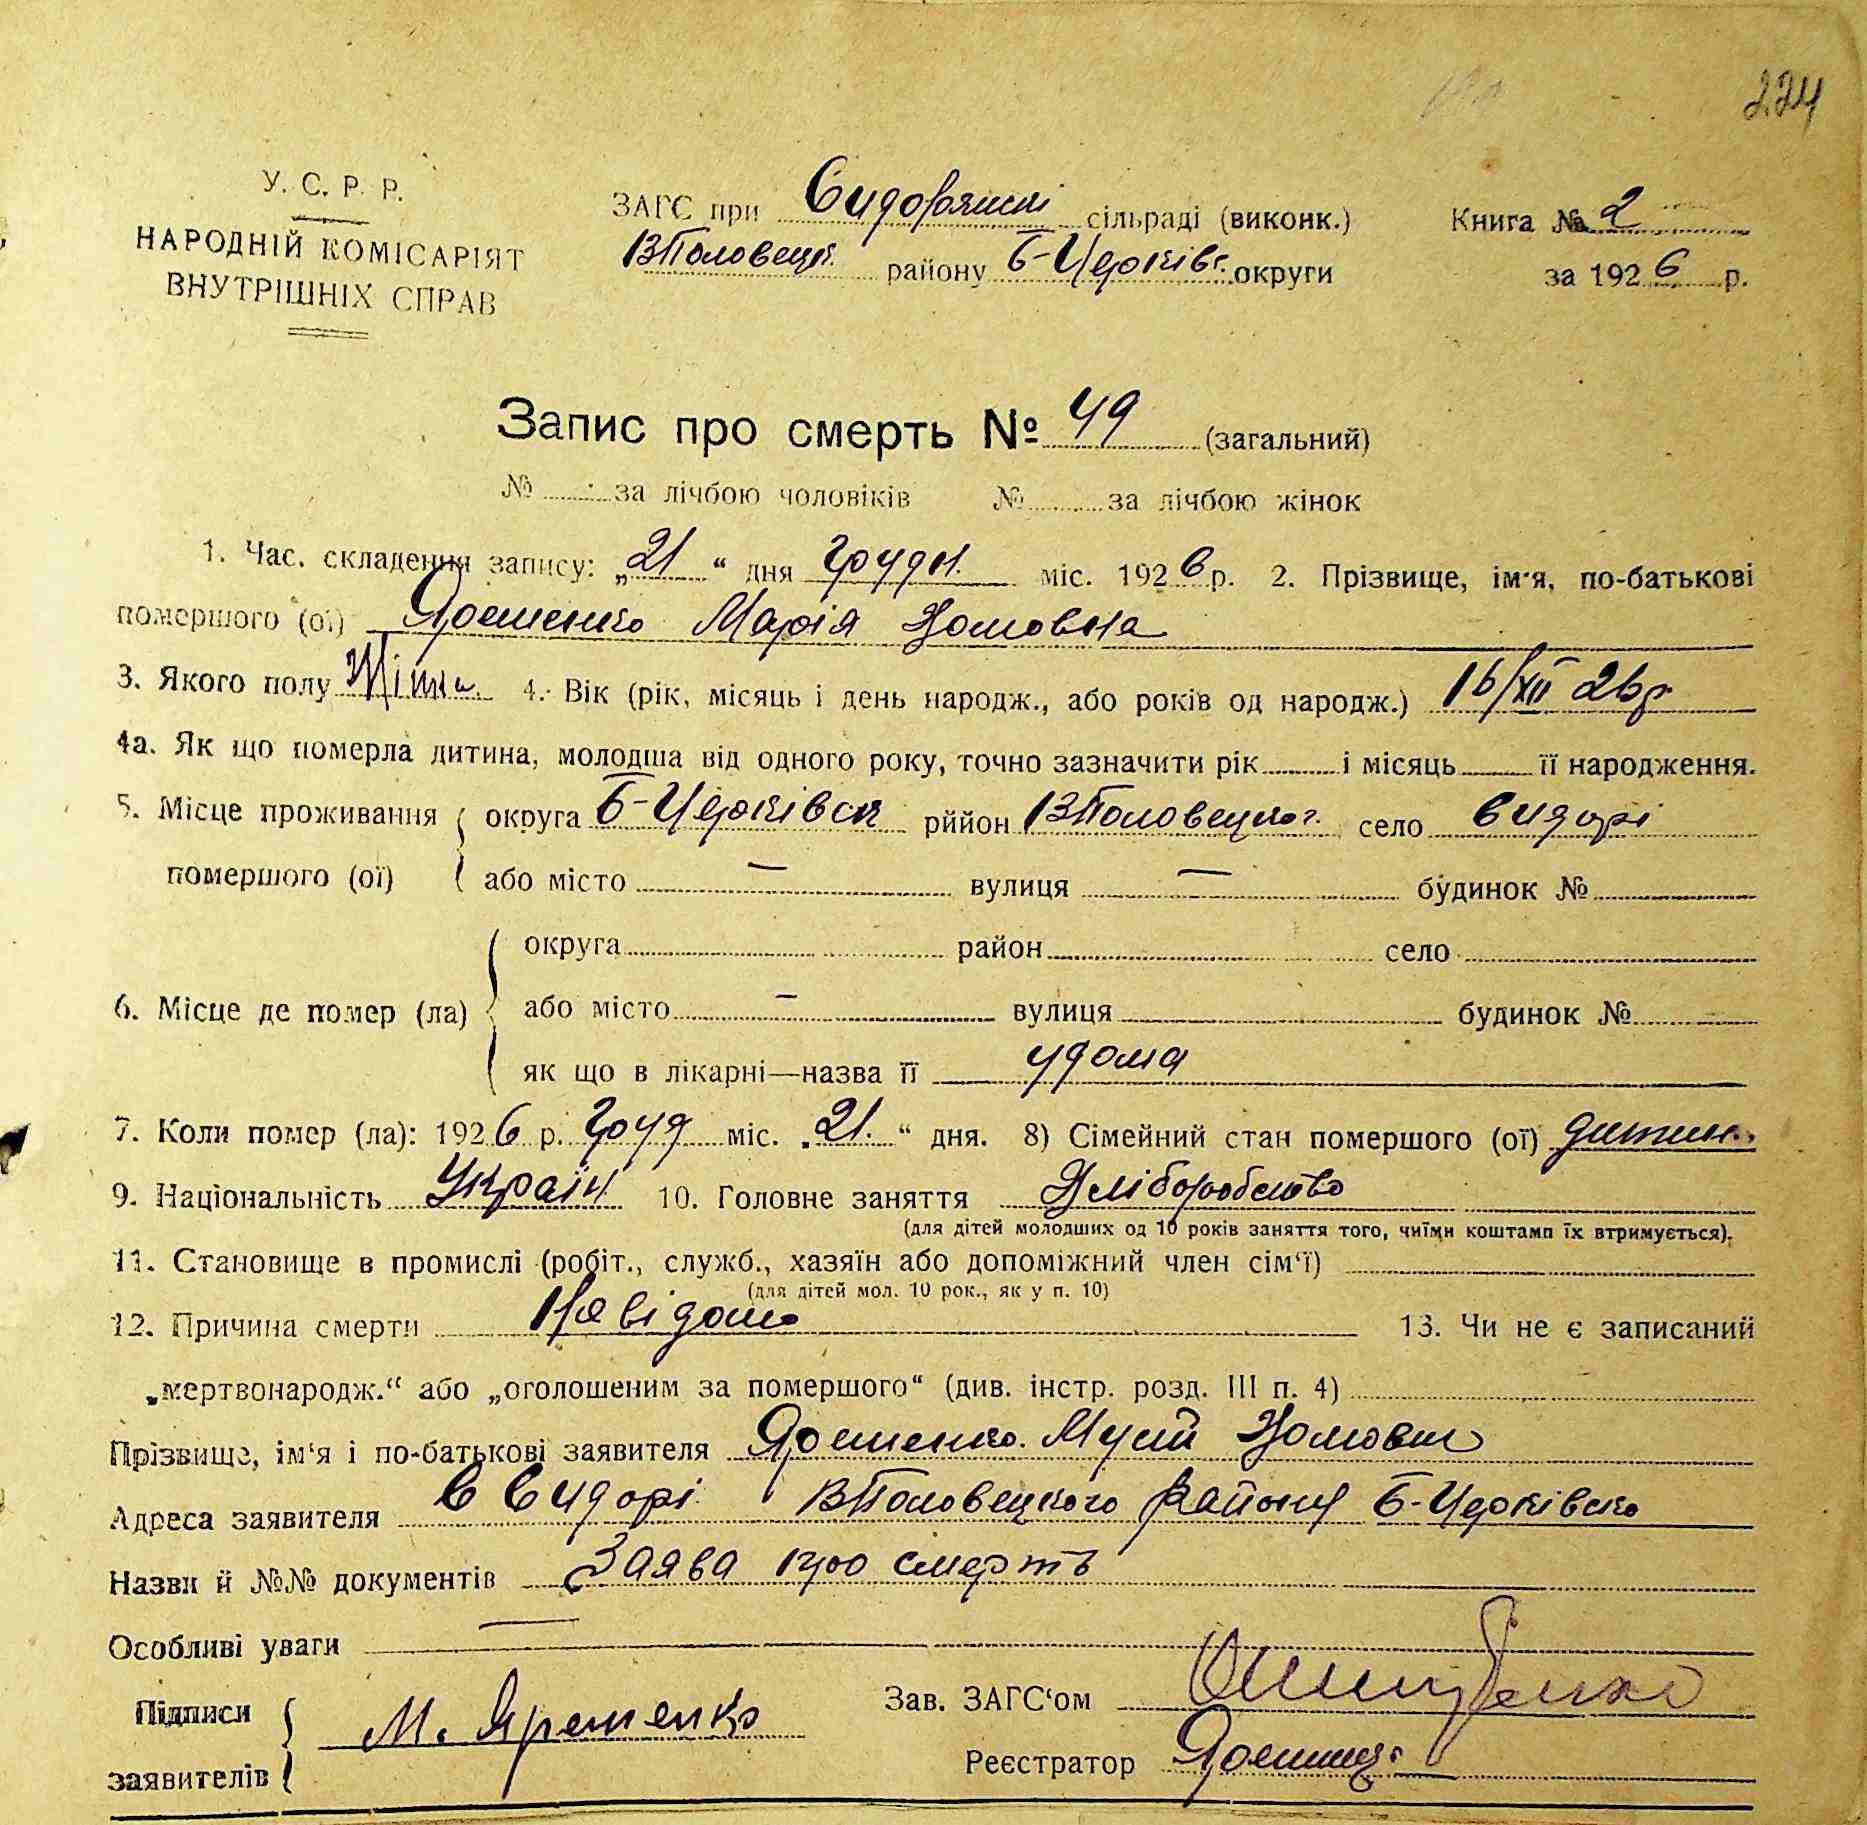 224
У. С. Р. Р.
НАРОДНІЙ КОМІСАРІЯТ
ВНУТРІШНІХ СПРАВ
ЗАГС при Сидорянскі сільраді (виконк.)
ВПоловецьк. району Б-Церківс. округи
Книга № 2
за 1926 р.
Запис про смерть № 49 (загальний)
№ за лічбою чоловіків № за лічбою жінок
1. Час. складення запису: „21“ дня грудн. міс. 1926 р. 2. Прізвище, ім'я, по-батькові
помершого (ої) Яременко Марія Хомовна
3. Якого полу Жіноч. 4. Вік (рік, місяць і день народж., або років од народж.) 16/XII 26р
4а. Як що померла дитина, молодша від одного року, точно зазначити рік і місяць її народження.
5. Місце проживання округа Б-Церківськ рййон ВПоловецког. село Сидорі
помершого (ої) або місто — вулиця — будинок №
округа район село
6. Місце де помер (ла) або місто — вулиця будинок №
як що в лікарні—назва її удома
7. Коли помер (ла): 1926 р. груд міс. „21.“ дня. 8) Сімейний стан помершого (ої) дитин.
9. Національність Україн. 10. Головне заняття Хліборобство
(для дітей молодших од 10 років заняття того, чиїми коштами їх втримується).
11. Становище в промислі (робіт., служб., хазяїн або допоміжний член сім'ї)
(для дітей мол. 10 рок., як у п. 10)
12. Причина смерти Невідомо 13. Чи не є записаний
„мертвонародж.“ або „оголошеним за помершого“ (див. інстр. розд. III п. 4)
Прізвище, ім'я і по-батькові заявителя Яременко Мусій Хомович
Адреса заявителя с Сидорі ВПоловецкого району Б-Церківсько
Назви й №№ документів Заява про смерть
Особливі уваги —
Підписи
заявителів М. Яременко
Зав. ЗАГС'ом
Реєстратор